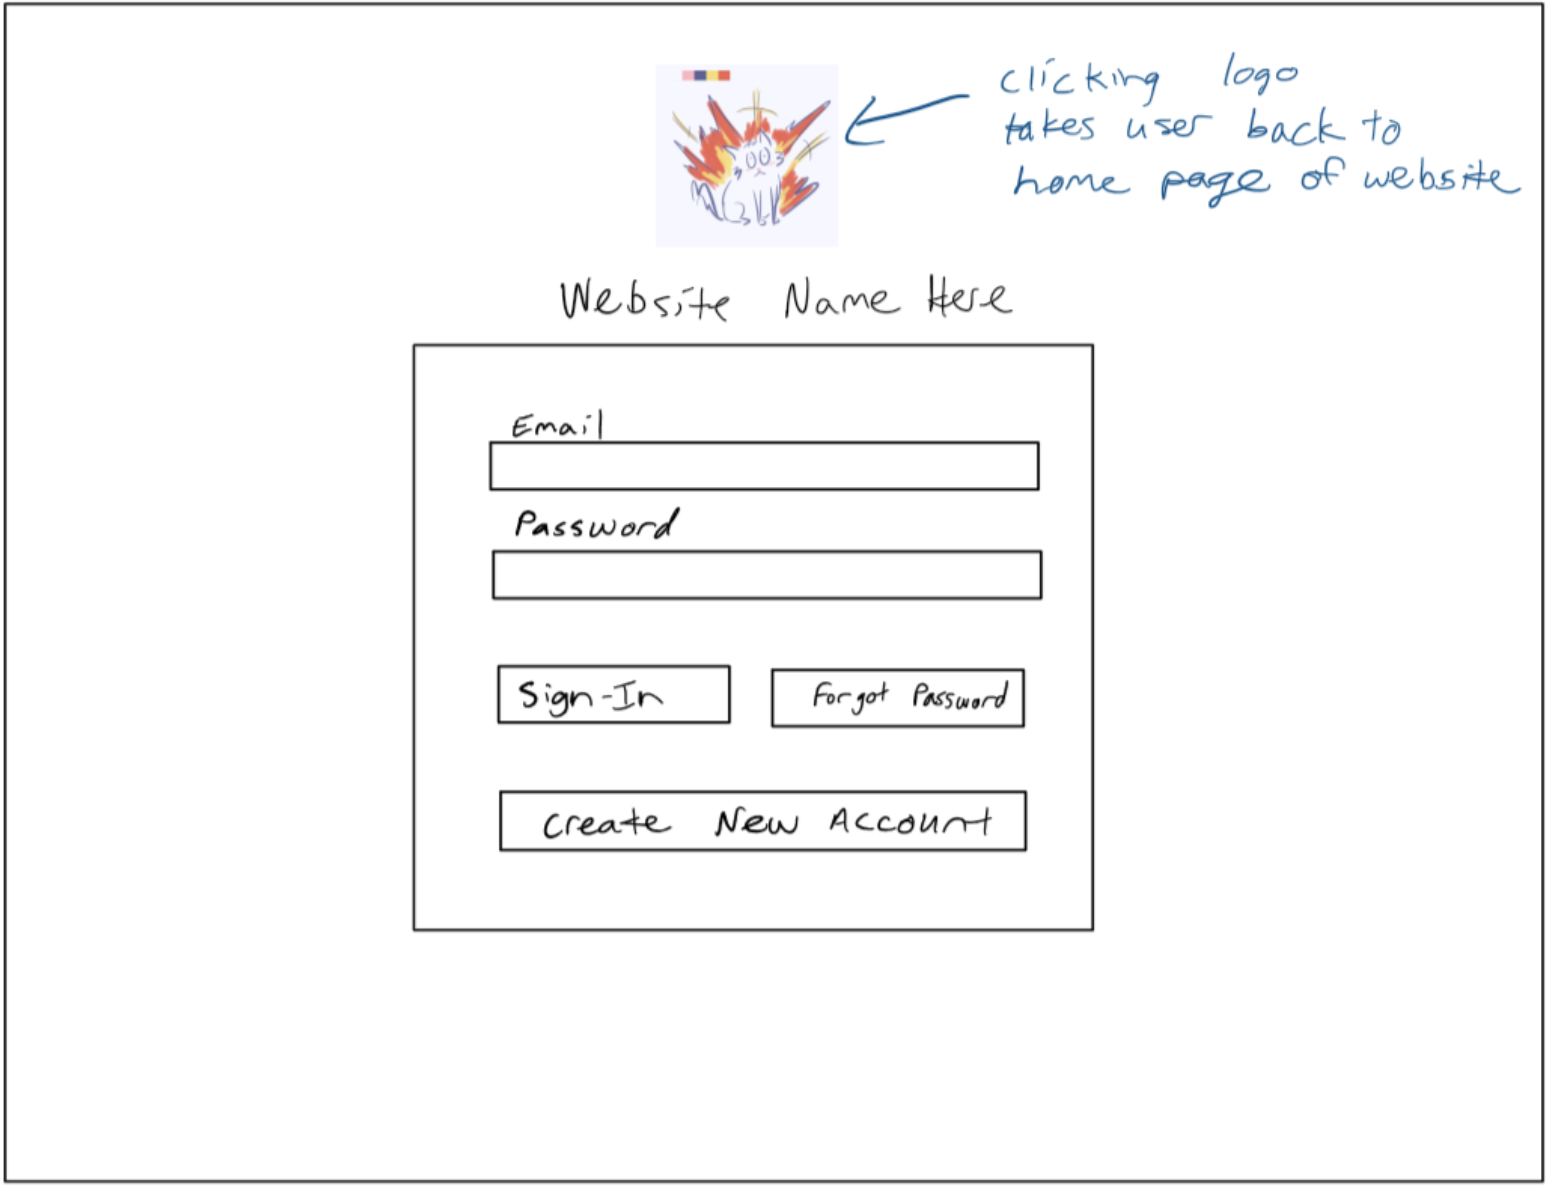 clicking logo
takes user back to
home page of website
Website Name Here
Email
Password
Sign-In
Forgot Password
Create New Account